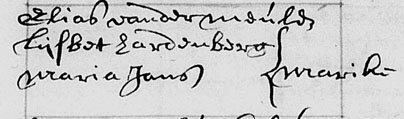 Elias vander meulen
Lijsbet Hardenberg
Maria Jans } Marike